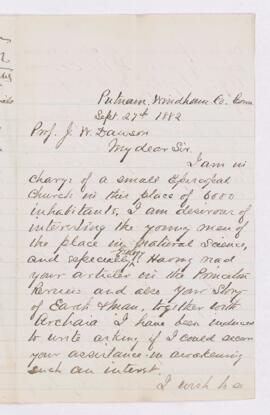 Putnam, Windham Co. Conn
Sept. 27th 1882
Prof. J. W. Dawson
My dear Sir.
I am in
charge of a small Episcopal
Church in this place of 6000
inhabitants, I am desirous of
interesting the young men of
the place in Natural Science,
and especially Having read
your articles in the Princeton
Review and also your Story
of Earth & Man, together with
Archaia I have been induced
to write asking if I could secure
your assistance in awakening
such an interest.
I wish to a